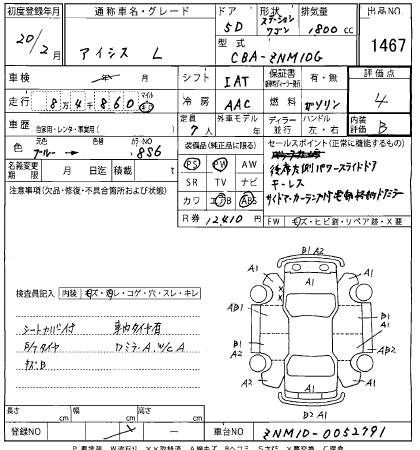 初度登録年月 通称車名・グレード ドア 形状 排気量 出品NO.
20/2月 アイシス L 5D ステーションワゴン 1800cc 1467
型式 CBA-ZNM10G
車検 年 月 シフト IAT 保証書 有・無 評価点 4
走行 8万4千860 マイル km 冷房 AAC 燃料 ガソリン 内装評価 B
車歴 自家用・レンタ・事業用( ) 定員 7人 外車モデル 年 ディーラー 並行 ハンドル 左・右
色 元色 ブルー → 色替 カラーNO 8S6
装備品(純正品に限る) セールスポイント(正常に機能するもの)
名義変更期限 月 日迄 積載 t
PS PW AW
後席左側パワースライドドア
SR TV ナビ
キーレス
カワ エアB ABS
サイドマーカーランプ付電動格納ドアミラー
注意事項(欠品・修復・不具合箇所および状態)
R券 12,410円 FW キズ・ヒビ割・リペア跡・X要
検査員記入 内装 キズ・汚レ・コゲ・穴・スレ・キレ
シートカバー付 車内タイヤ有
B/Tタイヤ
キズB
B1 A2
A1 A1 A1
AB1 A1
B1 A1 B1
A2 AB2
A1 A1 A1
B2 A1
長さ cm 幅 cm 高さ cm
登録NO 車台NO ZNM10-0052791